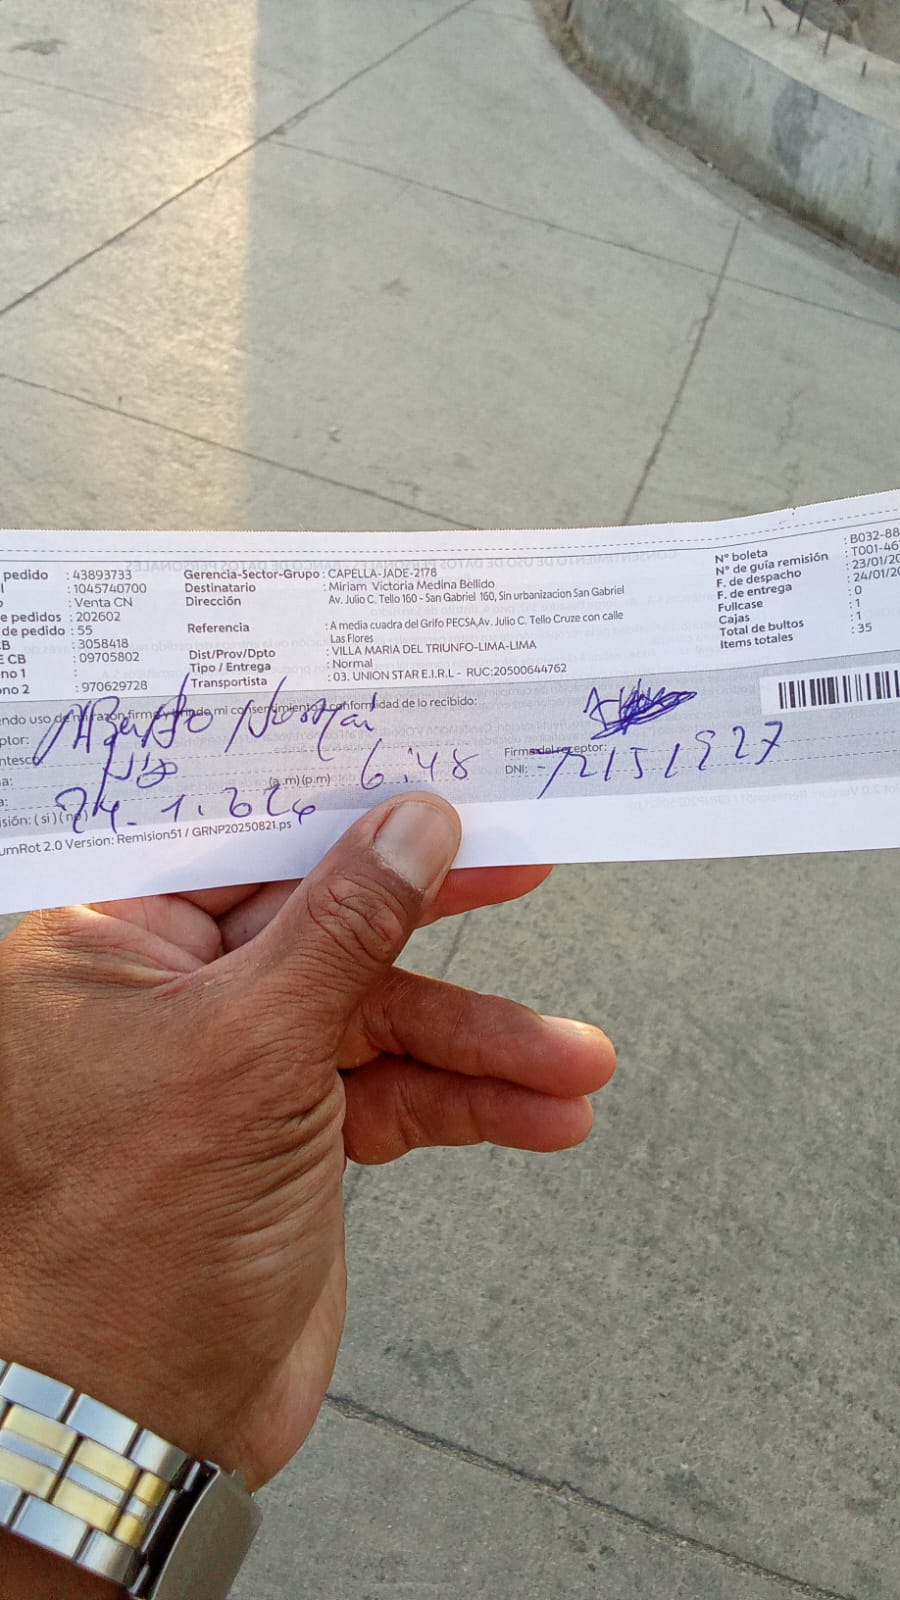 pedido : 43893733 Gerencia-Sector-Grupo : CAPELLA-JADE-2178 N° boleta : B032-88
: 1045740700 Destinatario : Miriam Victoria Medina Bellido N° de guía remisión : T001-46
: Venta CN Dirección : Av. Julio C. Tello 160 - San Gabriel 160, Sin urbanizacion San Gabriel F. de despacho : 23/01/20
e pedidos : 202602 F. de entrega : 24/01/20
de pedido : 55 Referencia : A media cuadra del Grifo PECSA,Av. Julio C. Tello Cruze con calle Fullcase : 0
Las Flores Cajas : 1
B : 3058418 Dist/Prov/Dpto : VILLA MARIA DEL TRIUNFO-LIMA-LIMA Total de bultos : 1
E CB : 09705802 Tipo / Entrega : Normal Items totales : 35
no 1 : Transportista : 03. UNION STAR E.I.R.L - RUC:20500644762
ono 2 : 970629728
endo uso de mi razón firmo y brindo mi consentimiento conformidad de lo recibido:
ptor:
ntesco Firma del receptor:
a: (a.m)(p.m) 6:48 DNI: 72151927
a: 24-1.
isión: ( si ) ( no )
umRot 2.0 Version: Remision51 / GRNP20250821.ps